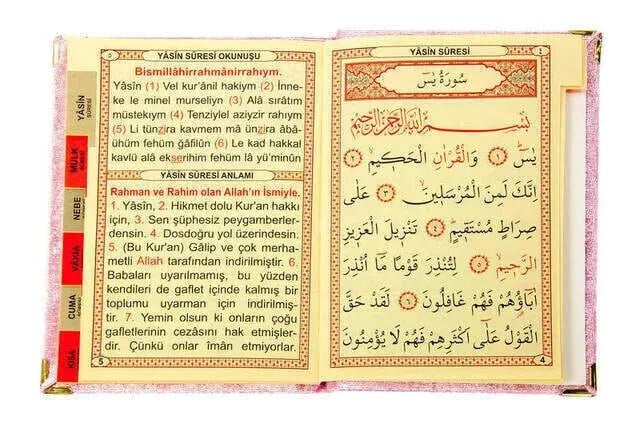 YÂSİN SÛRESİ OKUNUŞU
Bismillâhirrahmânirrahıym.
Yâsîn (1) Vel kur'ânil hakiym (2) İnne-
ke le minel murseliyn (3) Alâ sırâtım
müstekıym (4) Tenziylel aziyzir rahıym
(5) Li tünzira kavmem mâ ünzira âbâ-
ühüm fehüm gâfilûn (6) Le kad hakkal
kavlü alâ ekserihim fehüm lâ yü'minûn
YÂSİN SÛRESİ ANLAMI
Rahman ve Rahim olan Allah'ın İsmiyle.
1. Yâsîn, 2. Hikmet dolu Kur'an hakkı
için, 3. Sen şüphesiz peygamberler-
densin. 4. Dosdoğru yol üzerindesin.
5. (Bu Kur'an) Gâlip ve çok merha-
metli Allah tarafından indirilmiştir. 6.
Babaları uyarılmamış, bu yüzden
kendileri de gaflet içinde kalmış bir
toplumu uyarman için indirilmiş-
tir. 7. Yemin olsun ki onların çoğu
gafletlerinin cezasını hak etmişler-
dir. Çünkü onlar îmân etmiyorlar.
5
YÂSİN
SÛRESİ
MÜLK
NEBE
VAKIA
CUMA
KISA
YÂSİN SÛRESİ
٤
سُورَةُ يٰسٓ
بِسْمِ اللّٰهِ الرَّحْمٰنِ الرَّحِيمِ
يٰسٓ ﴿١﴾ وَالْقُرْاٰنِ الْحَكِيمِ ﴿٢﴾
اِنَّكَ لَمِنَ الْمُرْسَلِينَ ﴿٣﴾ عَلٰى
صِرَاطٍ مُسْتَقِيمٍ ﴿٤﴾ تَنْزِيلَ الْعَزِيزِ
الرَّحِيمِ ﴿٥﴾ لِتُنْذِرَ قَوْمًا مَٓا اُنْذِرَ
اٰبَٓاؤُهُمْ فَهُمْ غَافِلُونَ ﴿٦﴾ لَقَدْ حَقَّ
الْقَوْلُ عَلٰٓى اَكْثَرِهِمْ فَهُمْ لَا يُؤْمِنُونَ
4